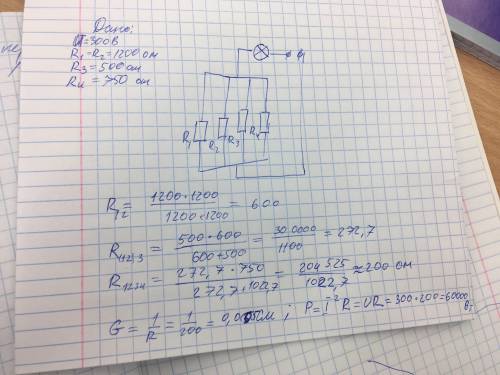 Дано:
U=300В
R1=R2=1200 ом
R3=500 ом
R4=750 ом
R1
R2
R3
R4
R12 = 1200·1200 / 1200+1200 = 600
R(12)3 = 500·600 / 600+500 = 300000 / 1100 = 272,7
R1234 = 272,7·750 / 272,7+1022,7 = 204525 / 1022,7 ≈ 200 ом
G = 1/R = 1/200 = 0,005См ; P=I²R=UR=300·200=60000
Вт